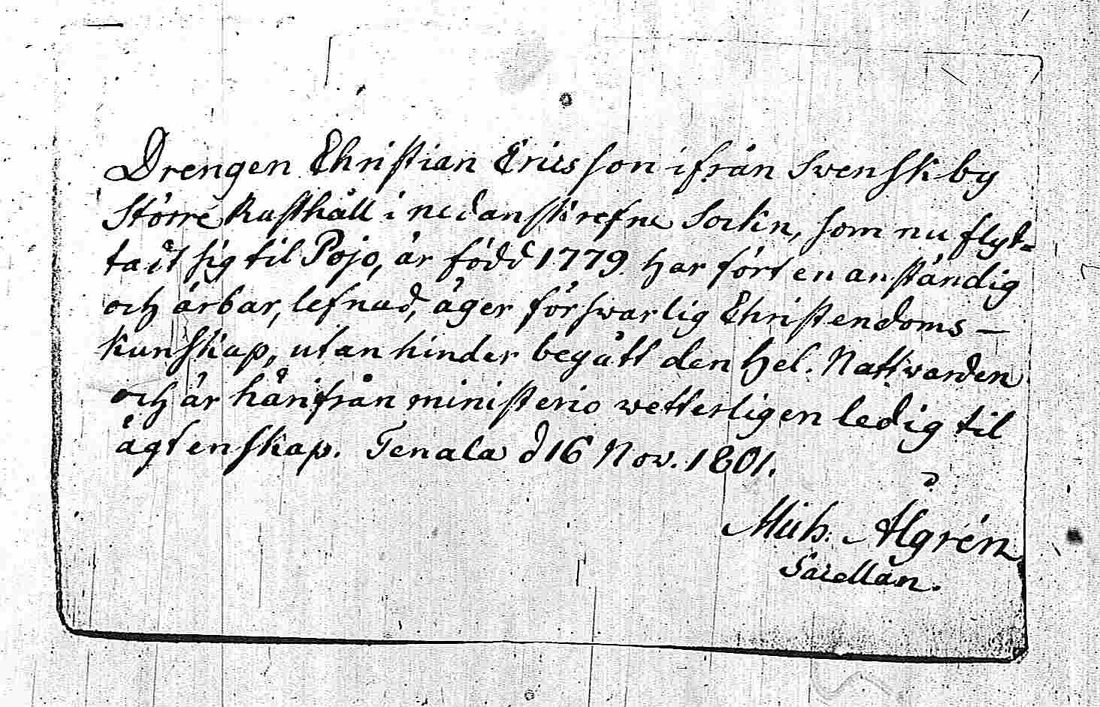 Drengen Christian Ericsson ifrån Svenskby
Större Rusthåll i nedanskrefne Sockn, som nu flyt=
tat sig til Pojo, är född 1779. har fört en anständig
och ärbar, lefnad, äger förswarlig Christendoms —
kunskap, utan hinder begått den Hel. Nattvarden
och är härifrån ministerio wetterligen ledig til
ägtenskap. Tenala d 16 Nov. 1801.
Mich. Ålgrén
Sacellan.